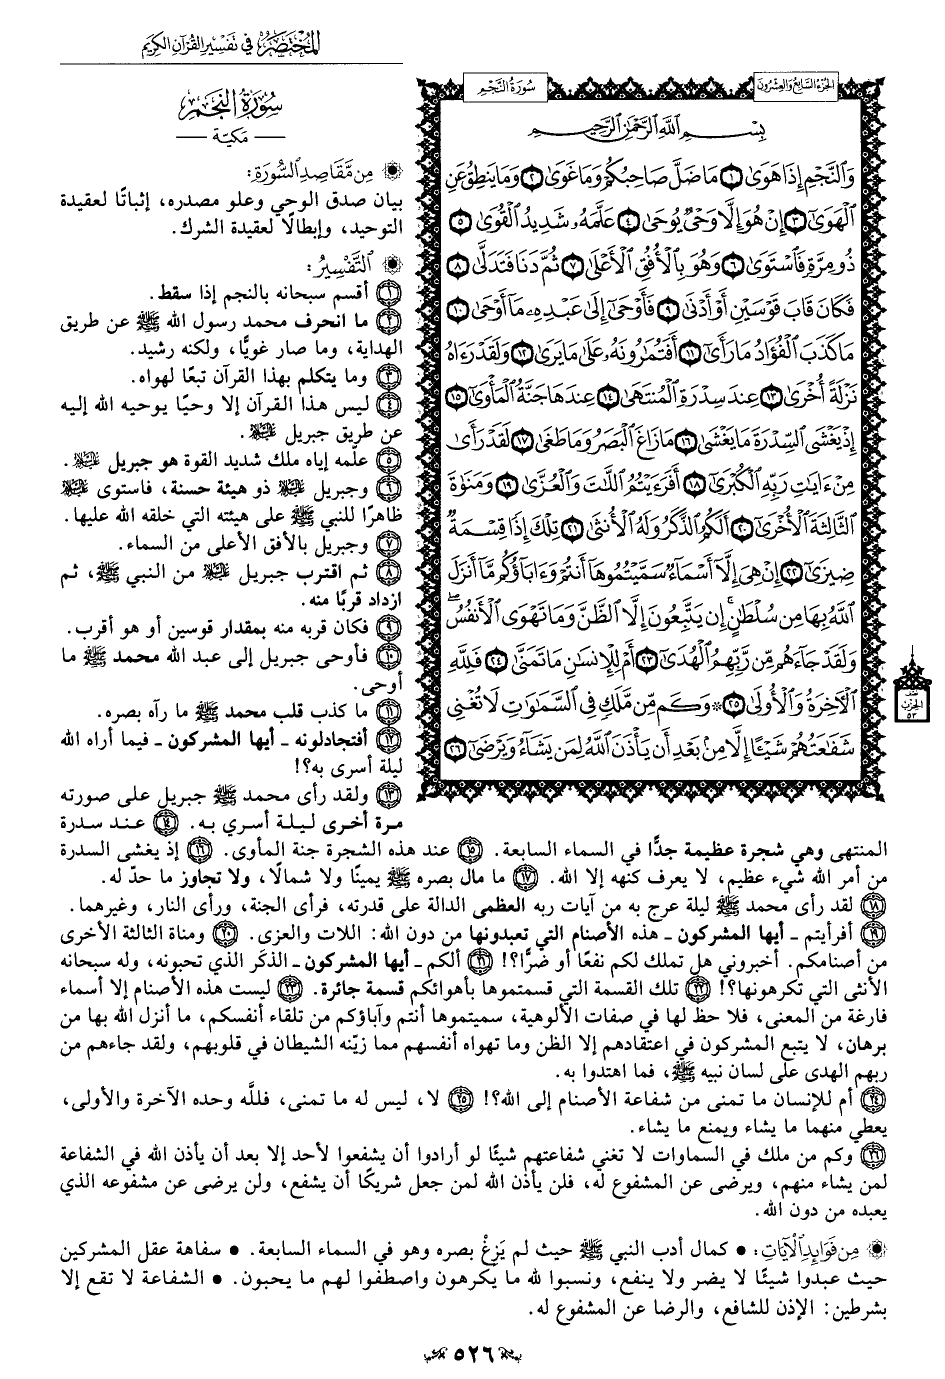 المختصر في تفسير القرآن الكريم
الجزء السابع والعشرون
سورة النجم
بِسْمِ اللَّهِ الرَّحْمَٰنِ الرَّحِيمِ
وَالنَّجْمِ إِذَا هَوَىٰ ١ مَا ضَلَّ صَاحِبُكُمْ وَمَا غَوَىٰ ٢ وَمَا يَنطِقُ عَنِ
الْهَوَىٰ ٣ إِنْ هُوَ إِلَّا وَحْيٌ يُوحَىٰ ٤ عَلَّمَهُ شَدِيدُ الْقُوَىٰ ٥
ذُو مِرَّةٍ فَاسْتَوَىٰ ٦ وَهُوَ بِالْأُفُقِ الْأَعْلَىٰ ٧ ثُمَّ دَنَا فَتَدَلَّىٰ ٨
فَكَانَ قَابَ قَوْسَيْنِ أَوْ أَدْنَىٰ ٩ فَأَوْحَىٰ إِلَىٰ عَبْدِهِ مَا أَوْحَىٰ ١٠
مَا كَذَبَ الْفُؤَادُ مَا رَأَىٰ ١١ أَفَتُمَارُونَهُ عَلَىٰ مَا يَرَىٰ ١٢ وَلَقَدْ رَءَاهُ
نَزْلَةً أُخْرَىٰ ١٣ عِندَ سِدْرَةِ الْمُنتَهَىٰ ١٤ عِندَهَا جَنَّةُ الْمَأْوَىٰ ١٥
إِذْ يَغْشَى السِّدْرَةَ مَا يَغْشَىٰ ١٦ مَا زَاغَ الْبَصَرُ وَمَا طَغَىٰ ١٧ لَقَدْ رَأَىٰ
مِنْ ءَايَاتِ رَبِّهِ الْكُبْرَىٰ ١٨ أَفَرَءَيْتُمُ اللَّاتَ وَالْعُزَّىٰ ١٩ وَمَنَوٰةَ
الثَّالِثَةَ الْأُخْرَىٰ ٢٠ أَلَكُمُ الذَّكَرُ وَلَهُ الْأُنثَىٰ ٢١ تِلْكَ إِذًا قِسْمَةٌ
ضِيزَىٰ ٢٢ إِنْ هِيَ إِلَّا أَسْمَاءٌ سَمَّيْتُمُوهَا أَنتُمْ وَءَابَاؤُكُم مَّا أَنزَلَ
اللَّهُ بِهَا مِن سُلْطَانٍ ۚ إِن يَتَّبِعُونَ إِلَّا الظَّنَّ وَمَا تَهْوَى الْأَنفُسُ ۖ
وَلَقَدْ جَاءَهُم مِّن رَّبِّهِمُ الْهُدَىٰ ٢٣ أَمْ لِلْإِنسَانِ مَا تَمَنَّىٰ ٢٤ فَلِلَّهِ
الْآخِرَةُ وَالْأُولَىٰ ٢٥ ۞ وَكَم مِّن مَّلَكٍ فِي السَّمَاوَاتِ لَا تُغْنِي
شَفَاعَتُهُمْ شَيْئًا إِلَّا مِن بَعْدِ أَن يَأْذَنَ اللَّهُ لِمَن يَشَاءُ وَيَرْضَىٰ ٢٦
الحزب
٥٣
سورة النجم
— مكية —
من مقاصد السورة:
بيان صدق الوحي وعلو مصدره، إثباتًا لعقيدة
التوحيد، وإبطالًا لعقيدة الشرك.
التفسير:
١ أقسم سبحانه بالنجم إذا سقط.
٢ ما انحرف محمد رسول الله ﷺ عن طريق
الهداية، وما صار غويًّا، ولكنه رشيد.
٣ وما يتكلم بهذا القرآن تبعًا لهواه.
٤ ليس هذا القرآن إلا وحيًا يوحيه الله إليه
عن طريق جبريل عليه السلام.
٥ علّمه إياه ملك شديد القوة هو جبريل عليه السلام.
٦ وجبريل عليه السلام ذو هيئة حسنة، فاستوى عليه السلام
ظاهرًا للنبي ﷺ على هيئته التي خلقه الله عليها.
٧ وجبريل بالأفق الأعلى من السماء.
٨ ثم اقترب جبريل عليه السلام من النبي ﷺ، ثم
ازداد قربًا منه.
٩ فكان قربه منه بمقدار قوسين أو هو أقرب.
١٠ فأوحى جبريل إلى عبد الله محمد ﷺ ما
أوحى.
١١ ما كذب قلب محمد ﷺ ما رآه بصره.
١٢ أفتجادلونه - أيها المشركون - فيما أراه الله
ليلة أسرى به؟!
١٣ ولقد رأى محمد ﷺ جبريل على صورته
مرة أخرى ليلة أسري به. ١٤ عند سدرة
المنتهى وهي شجرة عظيمة جدًّا في السماء السابعة. ١٥ عند هذه الشجرة جنة المأوى. ١٦ إذ يغشى السدرة
من أمر الله شيء عظيم، لا يعرف كنهه إلا الله. ١٧ ما مال بصره ﷺ يمينًا ولا شمالًا، ولا تجاوز ما حدّ له.
١٨ لقد رأى محمد ﷺ ليلة عرج به من آيات ربه العظمى الدالة على قدرته، فرأى الجنة، ورأى النار، وغيرهما.
١٩ أفرأيتم - أيها المشركون - هذه الأصنام التي تعبدونها من دون الله: اللات والعزى. ٢٠ ومناة الثالثة الأخرى
من أصنامكم. أخبروني هل تملك لكم نفعًا أو ضرًّا؟! ٢١ ألكم - أيها المشركون - الذكَر الذي تحبونه، وله سبحانه
الأنثى التي تكرهونها؟! ٢٢ تلك القسمة التي قسمتموها بأهوائكم قسمة جائرة. ٢٣ ليست هذه الأصنام إلا أسماء
فارغة من المعنى، فلا حظ لها في صفات الألوهية، سميتموها أنتم وآباؤكم من تلقاء أنفسكم، ما أنزل الله بها من
برهان، لا يتبع المشركون في اعتقادهم إلا الظن وما تهواه أنفسهم مما زيّنه الشيطان في قلوبهم، ولقد جاءهم من
ربهم الهدى على لسان نبيه ﷺ، فما اهتدوا به.
٢٤ أم للإنسان ما تمنى من شفاعة الأصنام إلى الله؟! ٢٥ لا، ليس له ما تمنى، فللَّه وحده الآخرة والأولى،
يعطي منهما ما يشاء ويمنع ما يشاء.
٢٦ وكم من ملك في السماوات لا تغني شفاعتهم شيئًا لو أرادوا أن يشفعوا لأحد إلا بعد أن يأذن الله في الشفاعة
لمن يشاء منهم، ويرضى عن المشفوع له، فلن يأذن الله لمن جعل شريكًا أن يشفع، ولن يرضى عن مشفوعه الذي
يعبده من دون الله.
من فوائد الآيات: • كمال أدب النبي ﷺ حيث لم يَزِغْ بصره وهو في السماء السابعة. • سفاهة عقل المشركين
حيث عبدوا شيئًا لا يضر ولا ينفع، ونسبوا لله ما يكرهون واصطفوا لهم ما يحبون. • الشفاعة لا تقع إلا
بشرطين: الإذن للشافع، والرضا عن المشفوع له.
٥٢٦